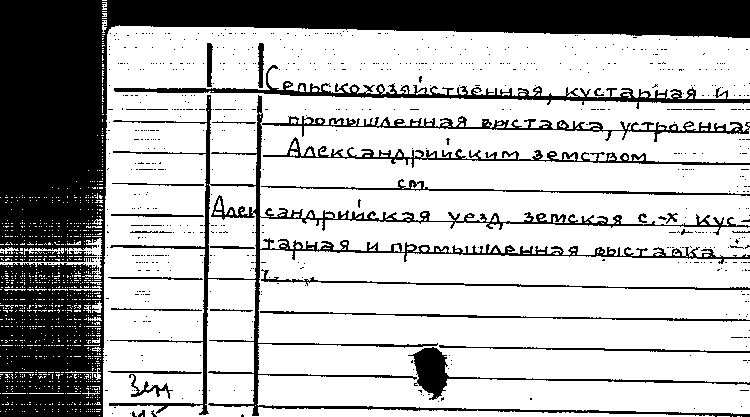 Сельскохозяйственная, кустарная и
промышленная выставка, устроенная
Александрийским земством
см.
Александрийская уезд. земская с.-х, кус-
тарная и промышленная выставка,
Зем